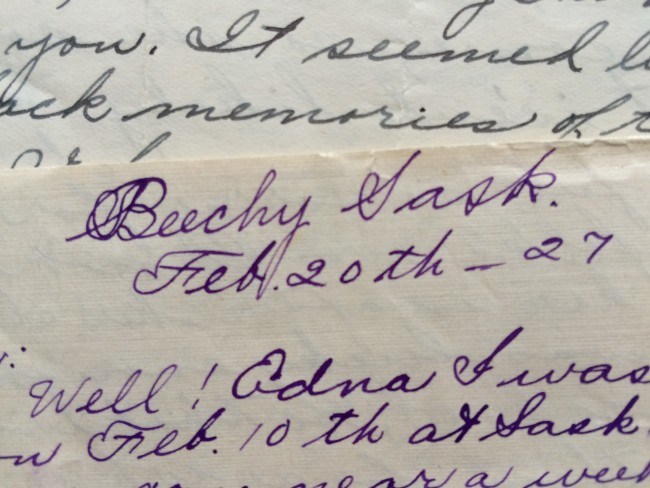 you. It seemed
memories of
Beechy Sask.
Feb. 20th - 27
Well! Edna I was
on Feb. 10th at Sask.
near a week